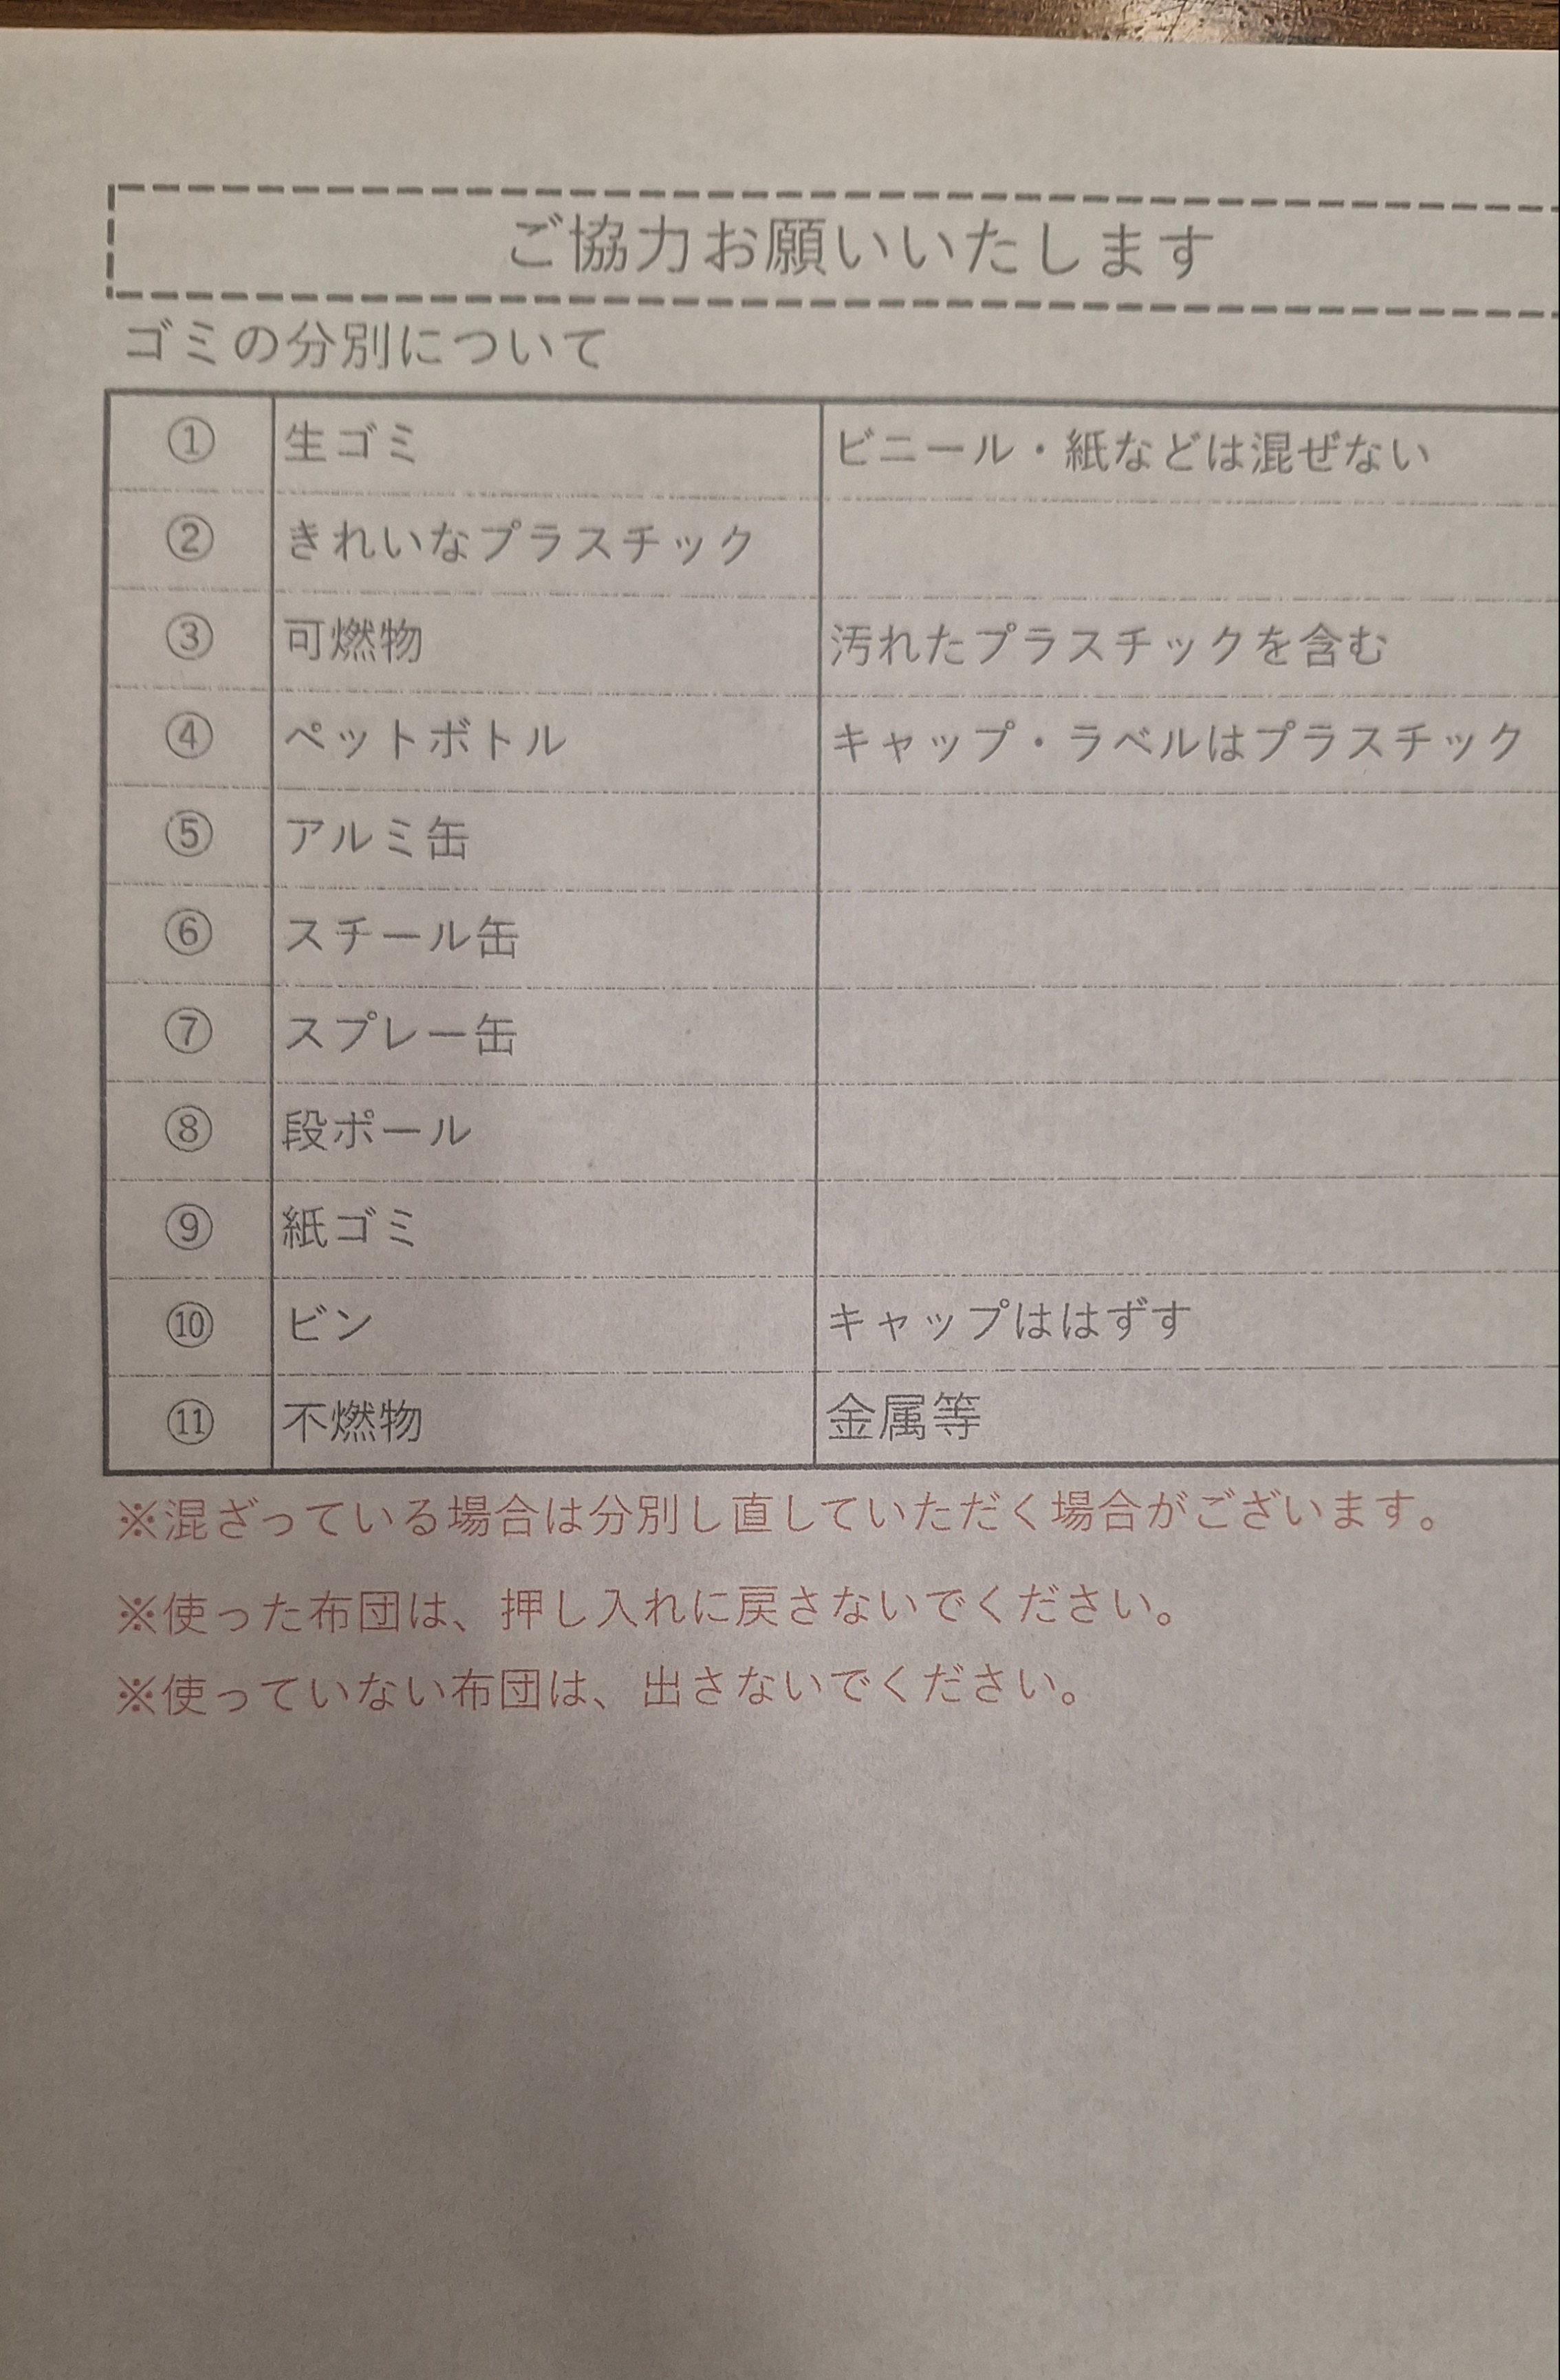 ご協力お願いいたします
ゴミの分別について
① 生ゴミ ビニール・紙などは混ぜない
② きれいなプラスチック
③ 可燃物 汚れたプラスチックを含む
④ ペットボトル キャップ・ラベルはプラスチック
⑤ アルミ缶
⑥ スチール缶
⑦ スプレー缶
⑧ 段ボール
⑨ 紙ゴミ
⑩ ビン キャップははずす
⑪ 不燃物 金属等
※混ざっている場合は分別し直していただく場合がございます。
※使った布団は、押し入れに戻さないでください。
※使っていない布団は、出さないでください。